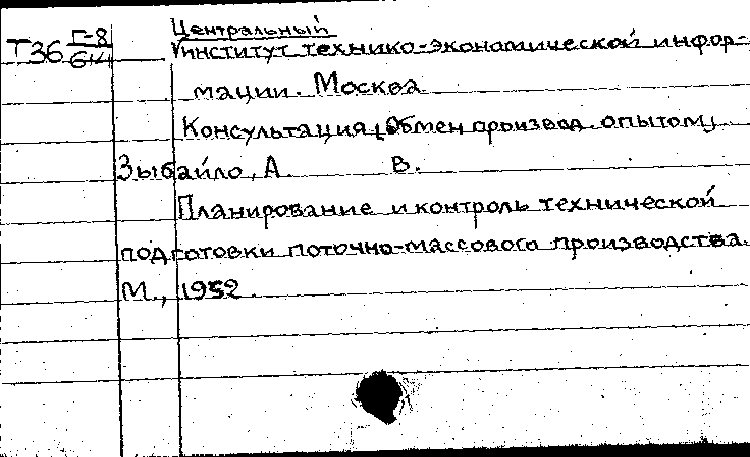 Центральный
Т36 Г-8/614 Институт технико-экономической инфор-
мации. Москва
Консультация [Обмен производ. опытом]
Зыбайло, А. В.
Планирование и контроль технической
подготовки поточно-массового производства.
М., 1952.